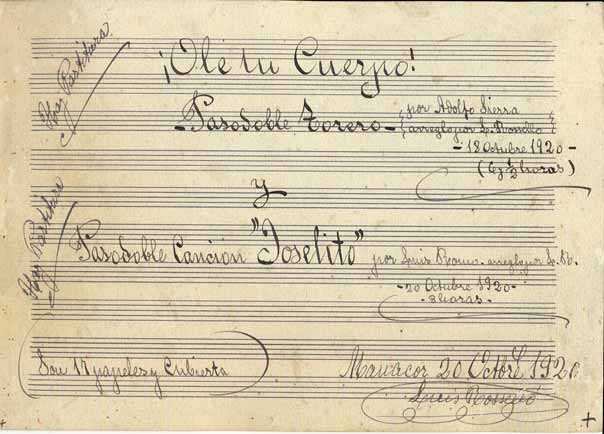 Hay Partitura
¡Olé tu Cuerpo!
-Pasodoble Torero-
por Adolfo Sierra
arreglo por L. Rosselló
-18 Octubre 1920-
horas)
y
Hay Partitura
Pasodoble Canción "Joselito" por Luis Romo. arreglo por L. R.
-20 Octubre 1920-
-8 horas-
Son 17 papeles y Cubierta
Manacor 20 Octbre 1920
Luis Rosselló